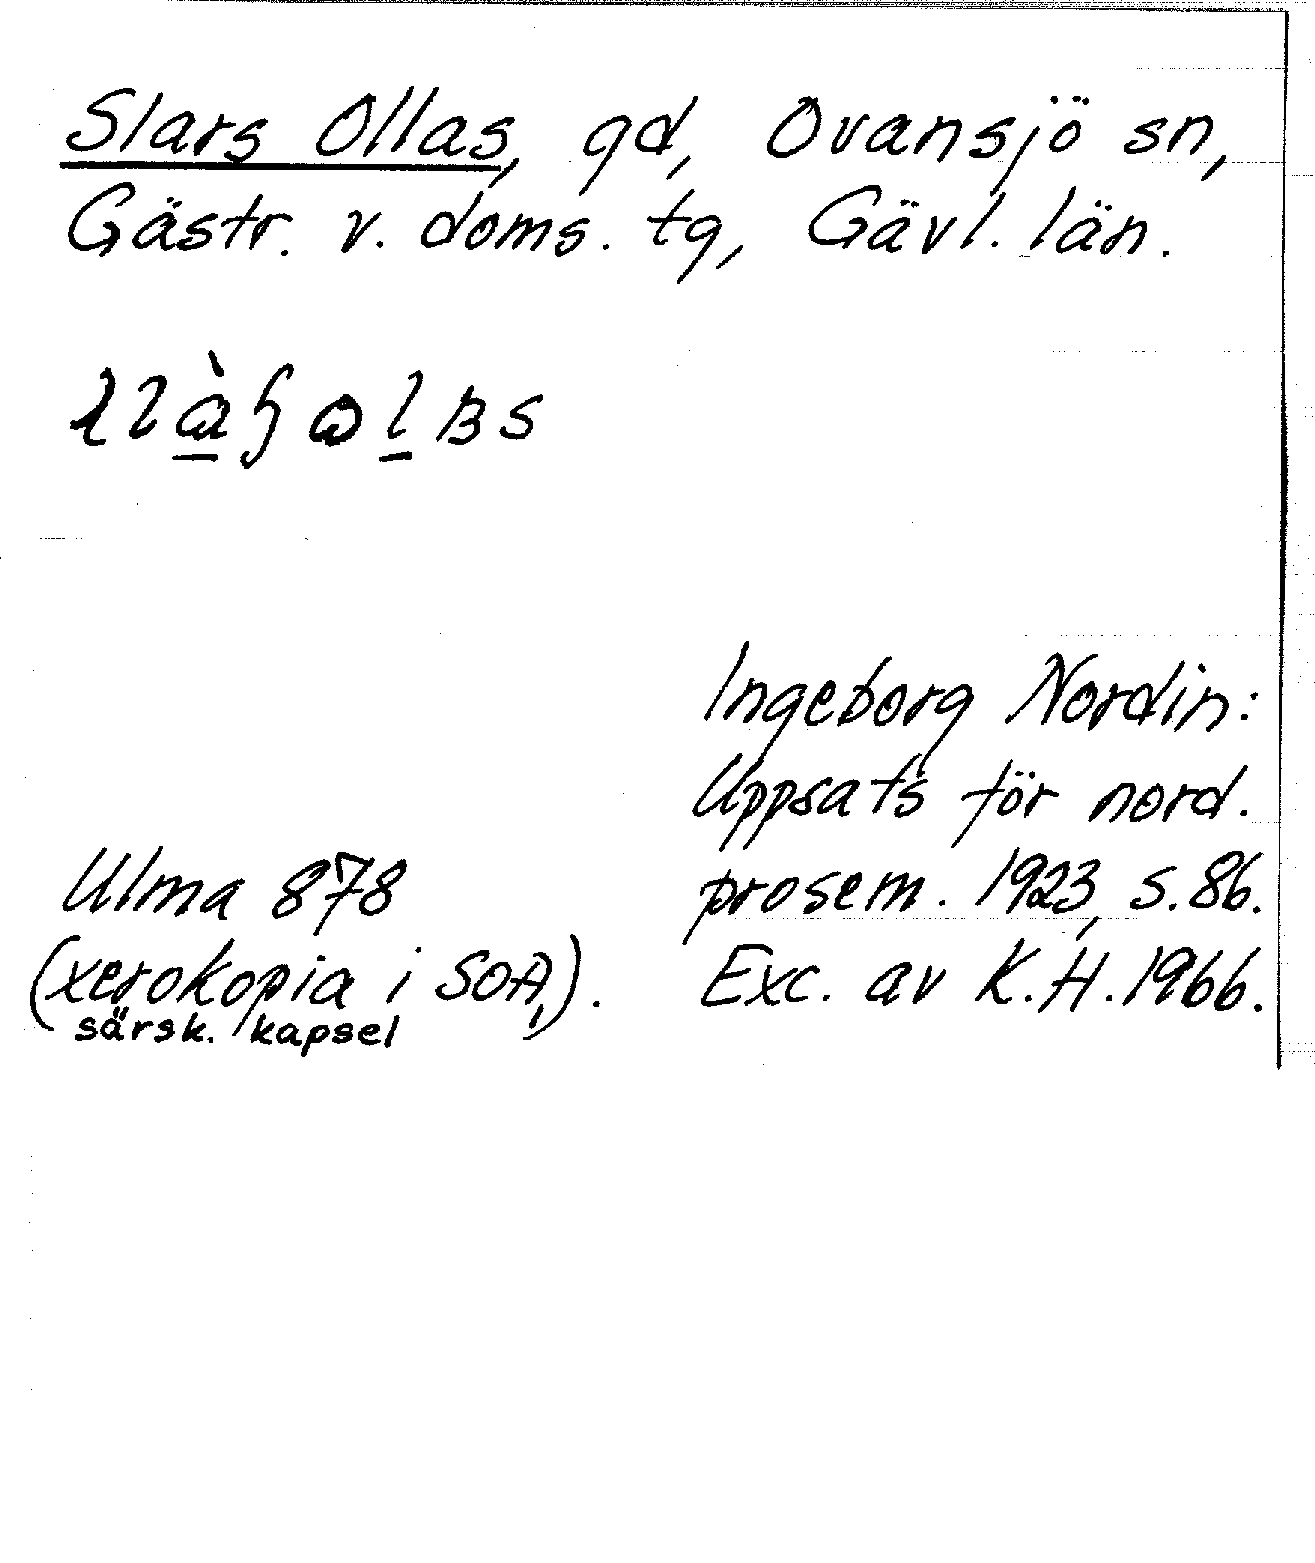 Slars Ollas, gd, Ovansjö sn,
Gästr. v. doms. tg, Gävl. län.
Ingeborg Nordin:
Uppsats för nord.
prosem. 1923, s. 86.
Exc. av K.H. 1966.
Ulma 878
(xerokopia i SOA,).
särsk. kapsel